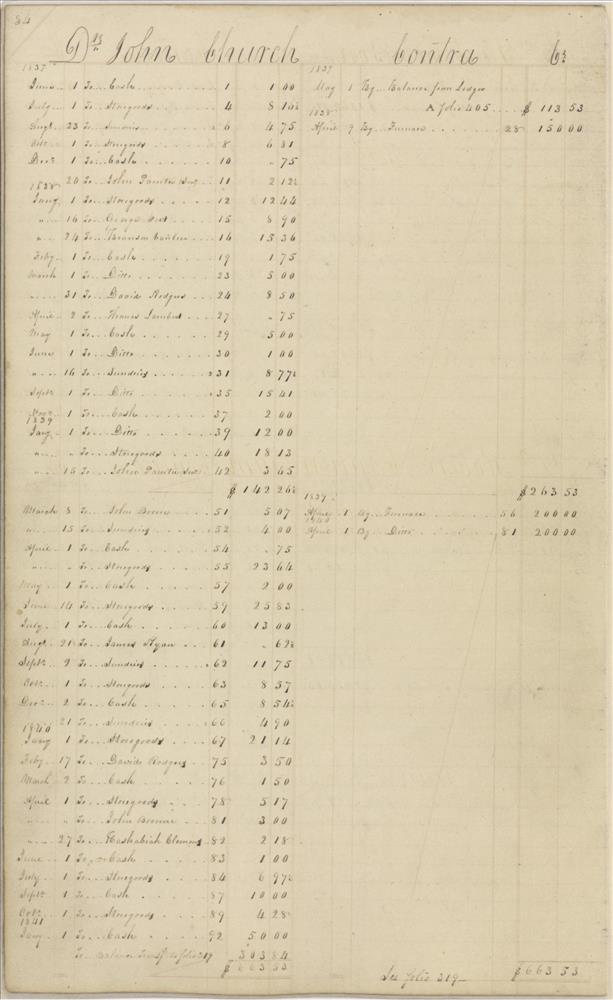 84
Drs John Church Contra Cr
1837
June 1 To Cash 1 1 00
July 1 To Storegoods 4 8 10½
Augt 23 To Sundries 6 4 75
Octr 1 To Storegoods 8 6 81
Decr 1 To Cash 10 " 75
" 20 To John 11 2 12½
1838
Jany 1 To Storegoods 12 12 44
" 16 To George 15 8 90
" 24 To 16 15 36
Feby 1 To Cash 19 1 75
March 1 To Ditto 23 5 00
" 31 To David Rodgers 24 8 50
April 2 To Thomas Lambert 27 " 75
May 1 To Cash 29 5 00
June 1 To Ditto 30 1 00
" 16 To Sundries 31 8 77½
Septr 1 To Ditto 35 15 41
Novr 1 To Cash 37 2 00
1839
Jany 1 To Ditto 39 12 00
" " To Storegoods 40 18 13
" 15 To John 42 3 65
$ 142 26½
March 8 To John Brown 51 5 07
" 15 To Sundries 52 4 00
April 1 To Cash 54 " 75
" " To Storegoods 55 23 64
May 1 To Cash 57 2 00
June 14 To Storegoods 59 25 83
July 1 To Cash 60 13 00
Augt 21 To James Ryan 61 " 62½
Septr 2 To Sundries 62 11 75
Octr 1 To Storegoods 63 8 37
Decr 2 To Cash 65 8 54½
" 21 To Sundries 66 4 90
1840
Jany 1 To Storegoods 67 21 14
Feby 17 To David Rodgers 75 3 50
March 2 To Cash 76 1 50
April 1 To Storegoods 78 5 17
" " To John Brown 81 3 00
" 27 To Hashabiah Clemens 82 2 18
June 1 To Cash 83 1 00
July 1 To Storegoods 84 6 97½
Septr 1 To Cash 87 10 00
Octr 1 To Storegoods 89 4 28
1841
Jany 1 To Cash 92 50 00
To Balance Transf to folio 319 303 84
$ 663 53
1837
May 1 By Balance from Ledger
A folio 405 $ 113 53
1838
April 9 By Furnace 28 150 00
$ 263 53
1839
April 1 By Furnace 56 200 00
1840
April 1 By Ditto 81 200 00
See folio 319 $ 663 53